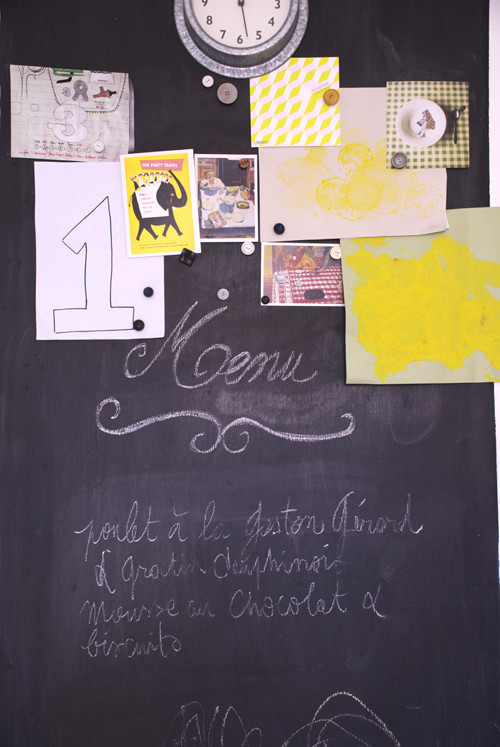 8 7 6 5 4
3
1
FOR PARTY TRAVEL
Menu
poulet à la Gaston Gérard
& gratin dauphinois
mousse au chocolat &
biscuits